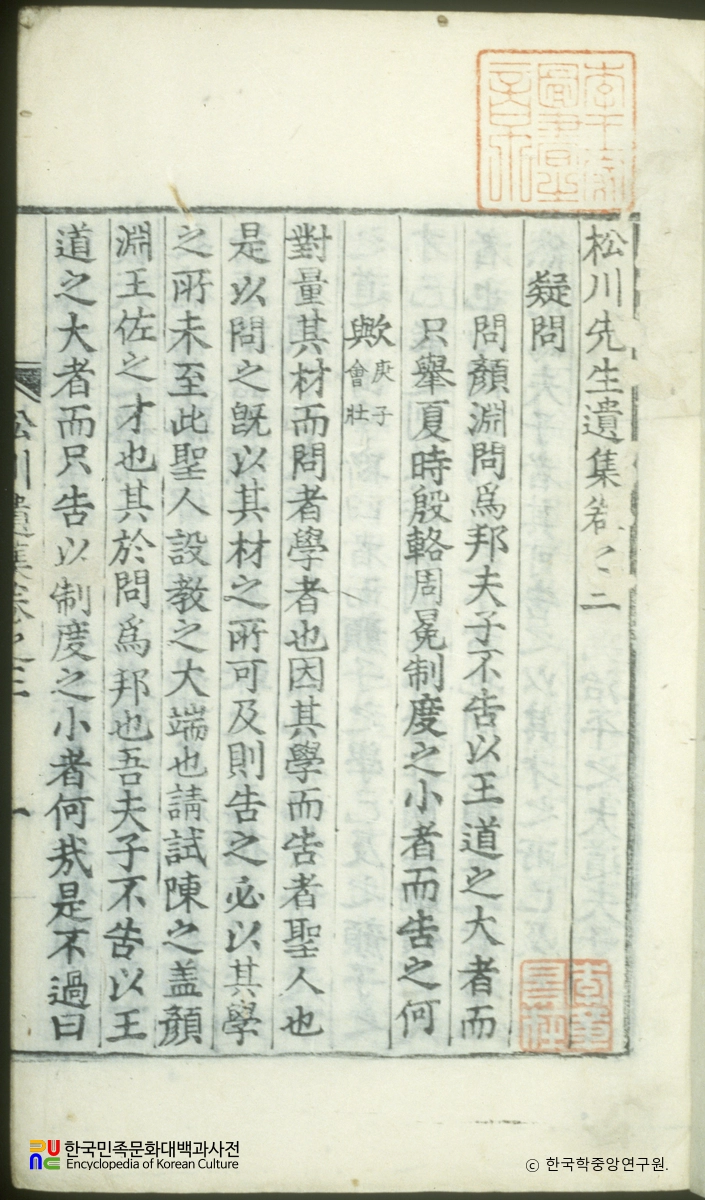 松川先生遺集卷之二
疑問
問顏淵問爲邦夫子不告以王道之大者而
只舉夏時殷輅周冕制度之小者而告之何
歟庚子會壯
對量其材而問者學者也因其學而告者聖人也
是以問之旣以其材之所可及則告之必以其學
之所未至此聖人設教之大端也請試陳之盖顏
淵王佐之才也其於問爲邦也吾夫子不告以王
道之大者而只告以制度之小者何哉是不過曰
松川遺集卷之二
一
한국민족문화대백과사전
Encyclopedia of Korean Culture
© 한국학중앙연구원.